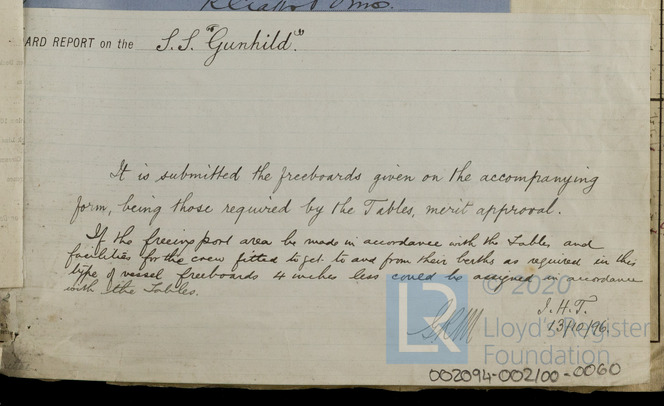 ARD REPORT on the S.S. "Gunhild".
It is submitted the freeboards given on the accompanying
form, being those required by the Tables, merit approval.
If the freeing port area be made in accordance with the Tables and
facilities for the crew fitted to get to and from their berths as required in this
type of vessel freeboards 4 inches less could be assigned in accordance
with the Tables.
J.H.T.
13/10/96
© 2020
Lloyd's Register
Foundation
LR
002094-002100-0060